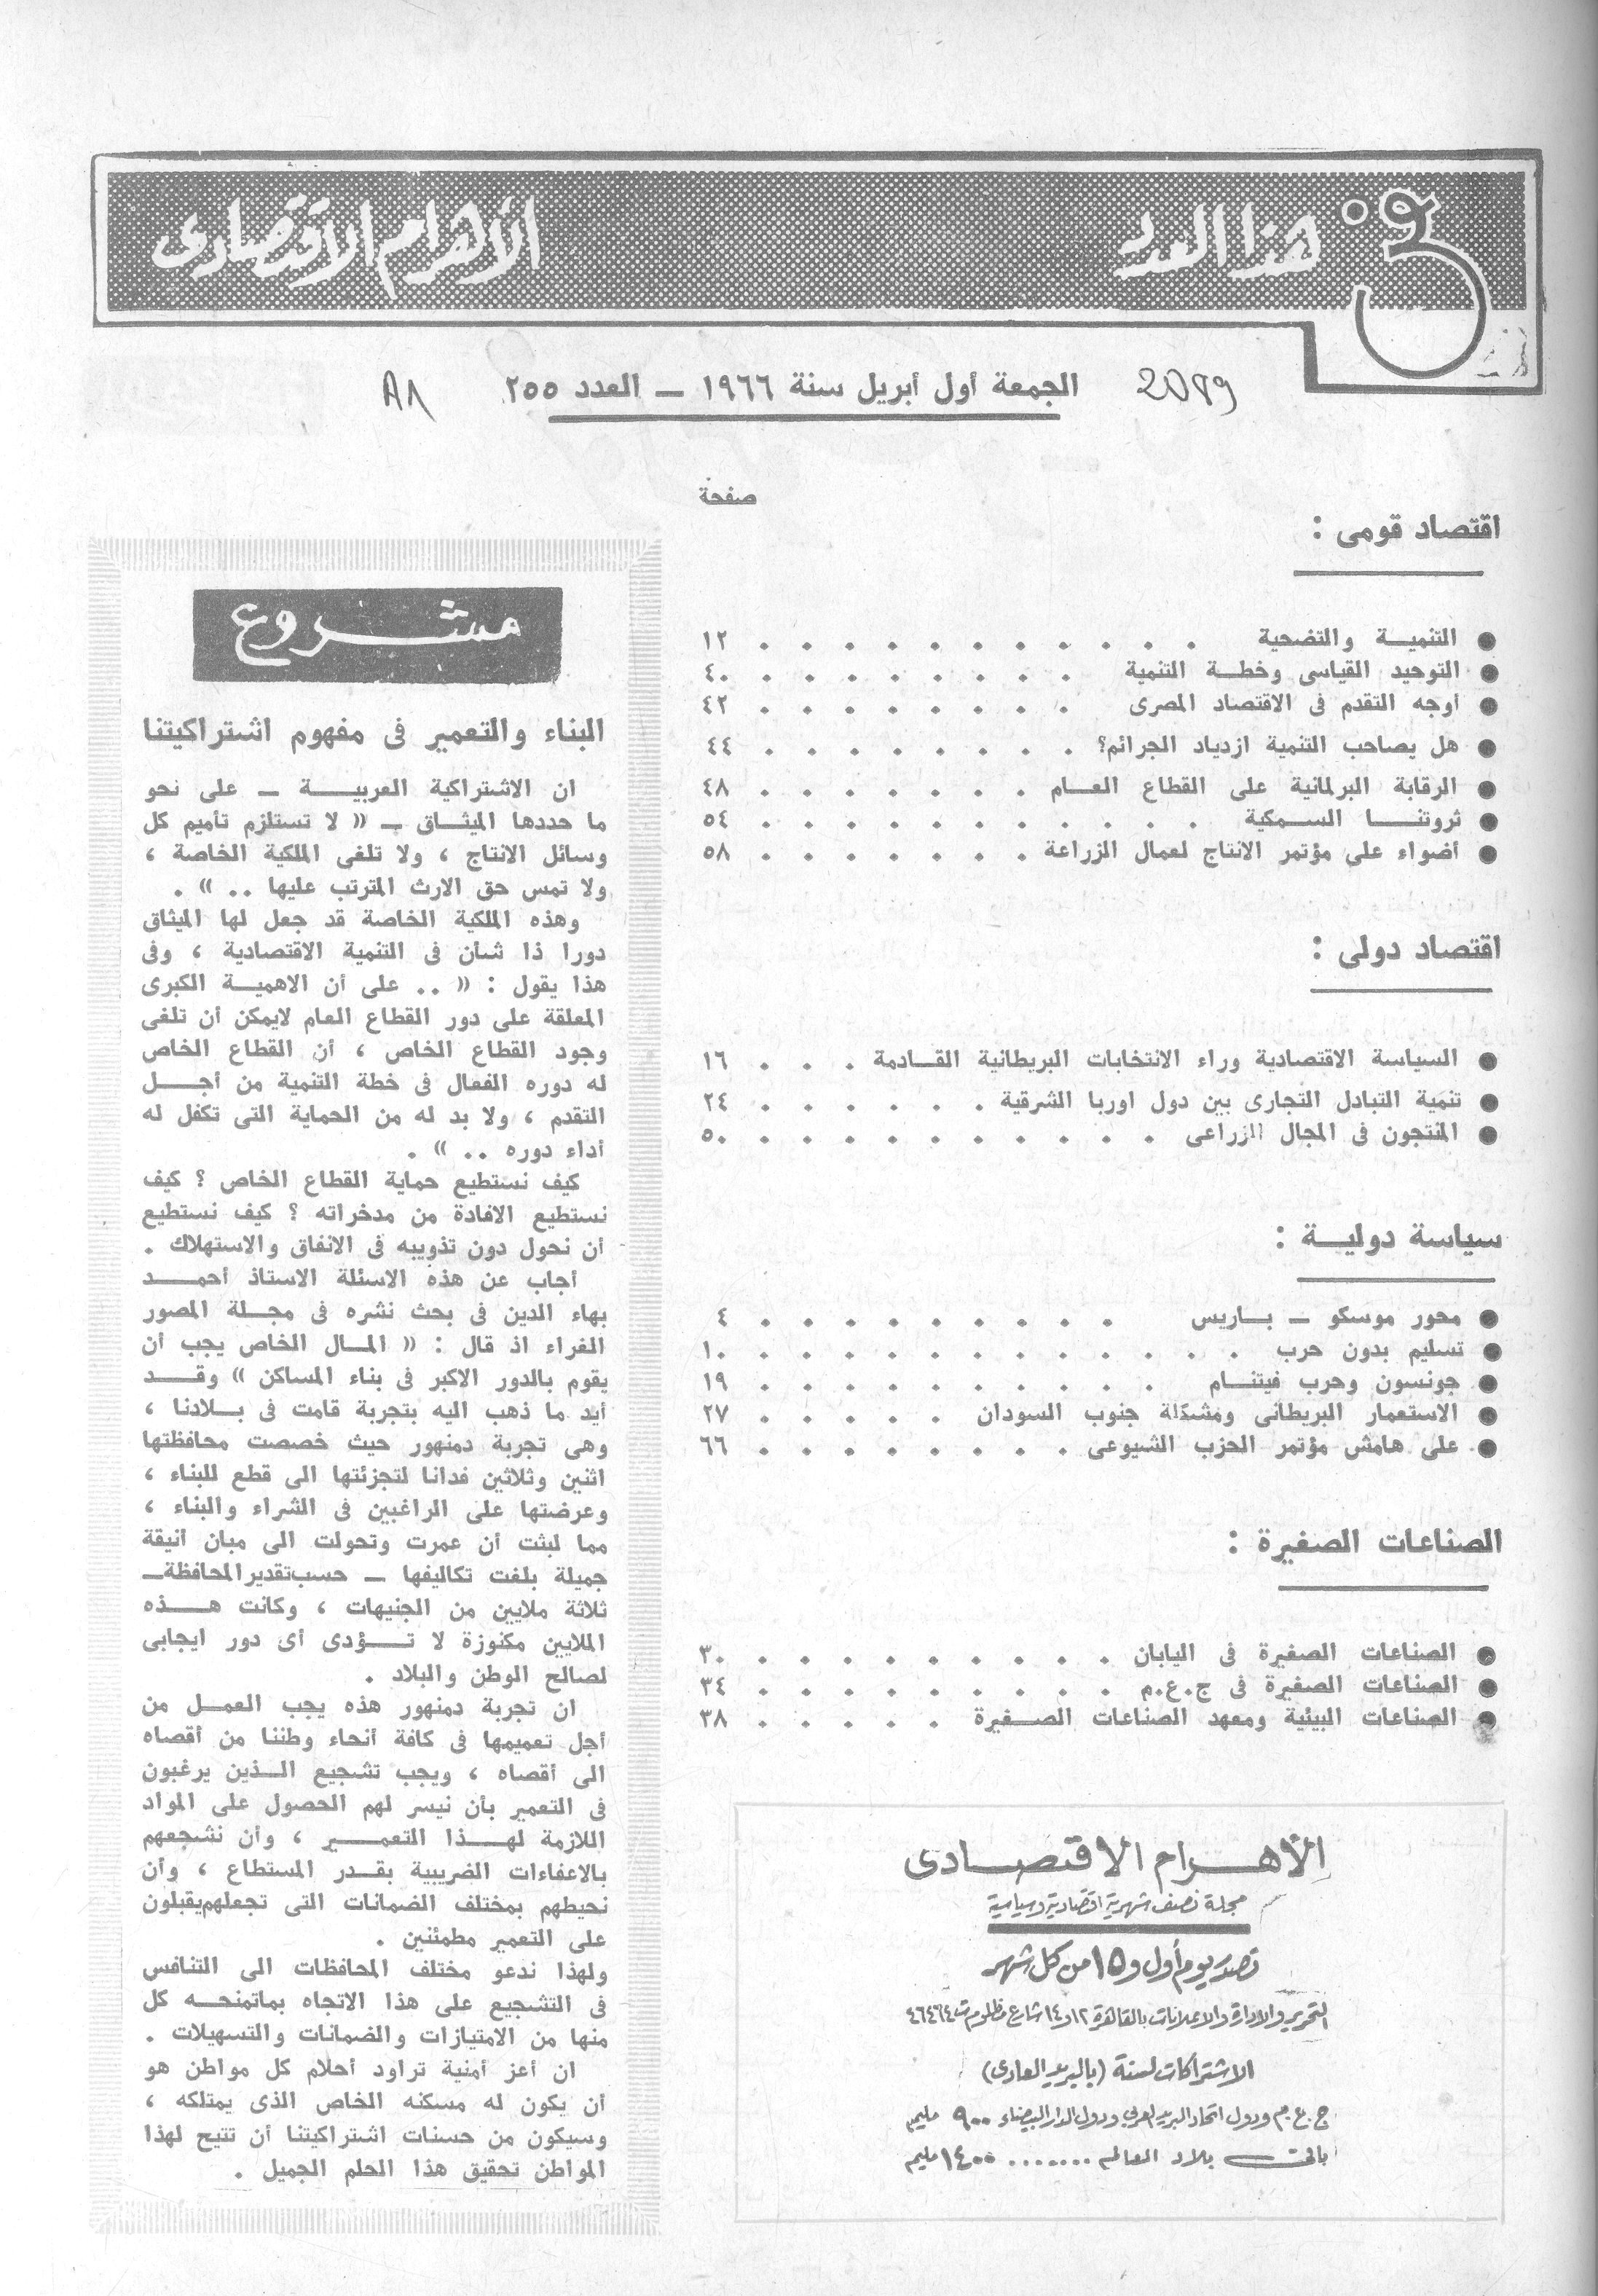 فى هذا العدد
الأهرام الاقتصادى
الجمعة أول أبريل سنة ١٩٦٦ — العدد ٢٥٥
صفحة
اقتصاد قومى :
● التنميــة والتضحية . . . . . . . . . . . ١٢
● التوحيد القياسى وخطــة التنمية . . . . . . . . ٤٠
● أوجه التقدم فى الاقتصاد المصرى . . . . . . . . ٤٢
● هل يصاحب التنمية ازدياد الجرائم؟ . . . . . . . . ٤٤
● الرقابة البرلمانية على القطاع العــام . . . . . . . ٤٨
● ثروتنــا السـمكية . . . . . . . . . . . ٥٤
● أضواء على مؤتمر الانتاج لعمال الزراعة . . . . . . . ٥٨
اقتصاد دولى :
● السياسة الاقتصادية وراء الانتخابات البريطانية القــادمة . . . ١٦
● تنمية التبادل التجارى بين دول اوربا الشرقية . . . . . . ٢٤
● المنتجون فى المجال الزراعى . . . . . . . . . . ٥٠
سياسة دوليــة :
● محور موسكو — بــاريس . . . . . . . . . ٤
● تسليم بدون حرب . . . . . . . . . . . . ١٠
● جونسون وحرب فيتنــام . . . . . . . . . . ١٩
● الاستعمار البريطانى ومشكلة جنوب السودان . . . . . ٢٧
● على هامش مؤتمر الحزب الشيوعى . . . . . . . . ٦٦
الصناعات الصغيرة :
● الصناعات الصغيرة فى اليابان . . . . . . . . . ٣٠
● الصناعات الصغيرة فى ج.ع.م . . . . . . . . . ٣٤
● الصناعات البيئية ومعهد الصناعات الصــغيرة . . . . . ٣٨
الأهــرام الاقتصــادى
مجلة نصف شهرية اقتصادية وسياسية
تصدر يوم أول و١٥ من كل شهر
التحرير والادارة والاعلانات بالقاهرة ١٢و١٤ شارع مظلوم ت ٤٦٤٦٤
الاشتراكات لسنة (بالبريد العادى)
ج.ع.م ودول اتحاد البريد العربى ودول الدار البيضاء ٩٠٠ مليم
باقى بلاد العالم ....... ١٤٠٠ مليم
مشــروع
البناء والتعمير فى مفهوم اشتراكيتنا
ان الاشتراكية العربيــة — على نحو
ما حددها الميثــاق — « لا تستلزم تأميم كل
وسائل الانتاج ، ولا تلغى الملكية الخاصة ،
ولا تمس حق الارث المترتب عليها .. » .
وهذه الملكية الخاصة قد جعل لها الميثاق
دورا ذا شأن فى التنمية الاقتصادية ، وفى
هذا يقول : « .. على أن الاهميــة الكبرى
المعلقة على دور القطاع العام لايمكن أن تلغى
وجود القطاع الخاص ، أن القطاع الخاص
له دوره الفعال فى خطة التنمية من أجــل
التقدم ، ولا بد له من الحماية التى تكفل له
أداء دوره .. » .
كيف نستطيع حماية القطاع الخاص ؟ كيف
نستطيع الافادة من مدخراته ؟ كيف نستطيع
أن نحول دون تذويبه فى الانفاق والاستهلاك .
أجاب عن هذه الاسئلة الاستاذ أحمــد
بهاء الدين فى بحث نشره فى مجــلة المصور
الغراء اذ قال : « المــال الخاص يجب أن
يقوم بالدور الاكبر فى بناء المساكن » وقــد
أيد ما ذهب اليه بتجربة قامت فى بــلادنا ،
وهى تجربة دمنهور حيث خصصت محافظتها
اثنين وثلاثين فدانا لتجزئتها الى قطع للبناء ،
وعرضتها على الراغبين فى الشراء والبناء ،
مما لبثت أن عمرت وتحولت الى مبان أنيقة
جميلة بلغت تكاليفها — حسب تقدير المحافظة —
ثلاثة ملايين من الجنيهات ، وكانت هــذه
الملايين مكنوزة لا تــؤدى أى دور ايجابى
لصالح الوطن والبلاد .
ان تجربة دمنهور هذه يجب العمــل من
أجل تعميمها فى كافة أنحاء وطننا من أقصاه
الى أقصاه ، ويجب تشجيع الــذين يرغبون
فى التعمير بأن نيسر لهم الحصول على المواد
اللازمة لهــذا التعمــير ، وأن نشجعهم
بالاعفاءات الضريبية بقــدر المستطاع ، وأن
نحيطهم بمختلف الضمانات التى تجعلهم يقبلون
على التعمير مطمئنين .
ولهذا ندعو مختلف المحافظات الى التنافس
فى التشجيع على هذا الاتجاه بماتمنحــه كل
منها من الامتيازات والضمانات والتسهيلات .
ان أعز أمنية تراود أحلام كل مواطن هو
أن يكون له مسكنه الخاص الذى يمتلكه ،
وسيكون من حسنات اشتراكيتنا أن تتيح لهذا
المواطن تحقيق هذا الحلم الجميل .